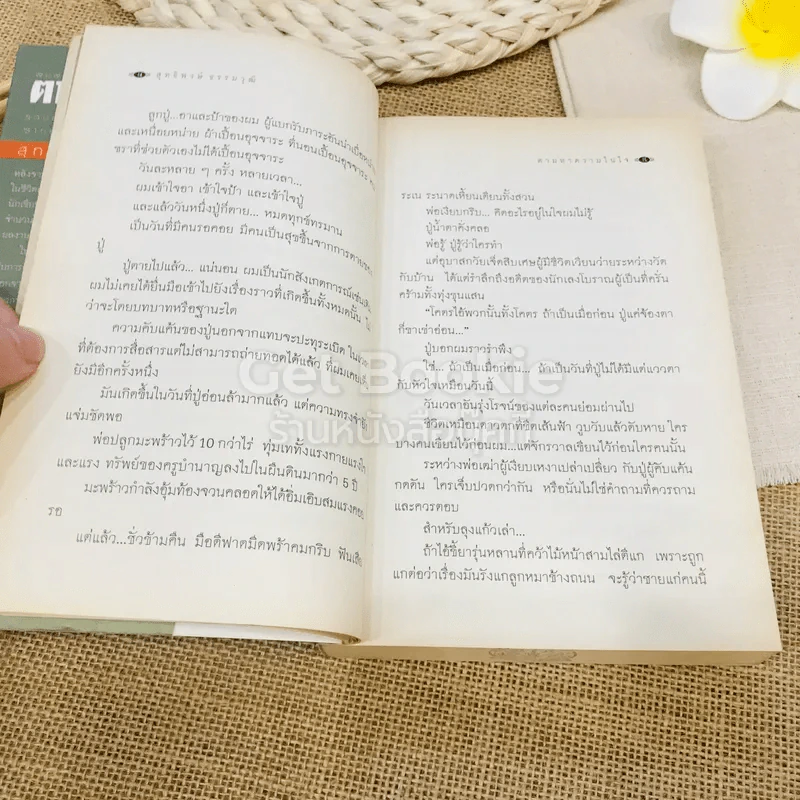 สุทธิพงษ์ ธรรมวุฒิ
ลูกปู่...อาและป้าของผม ผู้แบกรับภาระอันน่าเบื่อหน่าย
และเหนื่อยหน่าย ผ้าเปื้อนอุจจาระ ที่นอนเปื้อนอุจจาระ
ชราที่ช่วยตัวเองไม่ได้เปื้อนอุจจาระ
วันละหลาย ๆ ครั้ง หลายเวลา...
ผมเข้าใจอา เข้าใจป้า และเข้าใจปู่
และแล้ววันหนึ่งปู่ก็ตาย... หมดทุกข์ทรมาน
เป็นวันที่มีคนรอคอย มีคนเป็นสุขขึ้นจากการตายของ
ปู่
ปู่ตายไปแล้ว... แน่นอน ผมเป็นนักสังเกตการณ์เช่นเดิม
ผมไม่เคยได้ยื่นมือเข้าไปยังเรื่องราวที่เกิดขึ้นทั้งหมดนั้น ไม่
ว่าจะโดยบทบาทหรือฐานะใด
ความคับแค้นของปู่นอกจากแทบจะปะทุระเบิด
ที่ต้องการสื่อสารแต่ไม่สามารถถ่ายทอดได้แล้ว ที่ผมเคย
ยังมีอีกครั้งหนึ่ง
มันเกิดขึ้นในวันที่ปู่อ่อนล้ามากแล้ว แต่ความทรงจำยัง
แจ่มชัดพอ
พ่อปลูกมะพร้าวไว้ 10 กว่าไร่ ทุ่มเททั้งแรงกายแรงใจ
และแรง ทรัพย์ของครูบำนาญลงไปในผืนดินมากว่า 5 ปี
มะพร้าวกำลังอุ้มท้องจวนคลอดให้ได้อิ่มเอิบสมแรงคอย
รอ
แต่แล้ว...ชั่วข้ามคืน มือดีฟาดมีดพร้าคมกริบ ฟัน
ตามหาความในใจ
ระเน ระนาดเหี้ยนเตียนทั้งสวน
พ่อเงียบกริบ... คิดอะไรอยู่ในใจผมไม่รู้
ปู่น้ำตาคังคลอ
พ่อรู้ ปู่รู้ว่าใครทำ
แต่อุบาสกวัยเจ็ดสิบเศษผู้มีชีวิตเวียนว่ายระหว่างวัด
กับบ้าน ได้แต่รำลึกถึงอดีตของนักเลงโบราณผู้เป็นที่ครั่น
คร้ามทั้งทุ่งขุนแสน
“โคตรไอ้พวกนั้นทั้งโคตร ถ้าเป็นเมื่อก่อน ปู่แค่จ้องตา
ก็ขาเข่าอ่อน...”
ปู่บอกผมราวรำพึง
ใช่... ถ้าเป็นเมื่อก่อน... ถ้าเป็นวันที่ปู่ไม่ได้มีแต่แววตา
กับหัวใจเหมือนวันนี้
วันเวลาอันรุ่งโรจน์ของแต่ละคนย่อมผ่านไป
ชีวิตเหมือนดาวตกที่ขีดเส้นฟ้า วูบวับแล้วดับหาย ใคร
บางคนเขียนไว้ก่อนผม...แต่จักรวาลเขียนไว้ก่อนใครคนนั้น
ระหว่างพ่อเฒ่าผู้เงียบเหงาเปล่าเปลี่ยว กับปู่ผู้คับแค้น
กดดัน ใครเจ็บปวดกว่ากัน หรือนั่นไม่ใช่คำถามที่ควรถาม
และควรตอบ
สำหรับลุงแก้วเล่า...
ถ้าไอ้ขี้ยารุ่นหลานที่คว้าไม้หน้าสามไล่ตีแก เพราะถูก
แกต่อว่าเรื่องมันรังแกลูกหมาข้างถนน จะรู้ว่าชายแก่คนนี้
Get Bookie
ร้านหนังสือผู้ศักดิ์